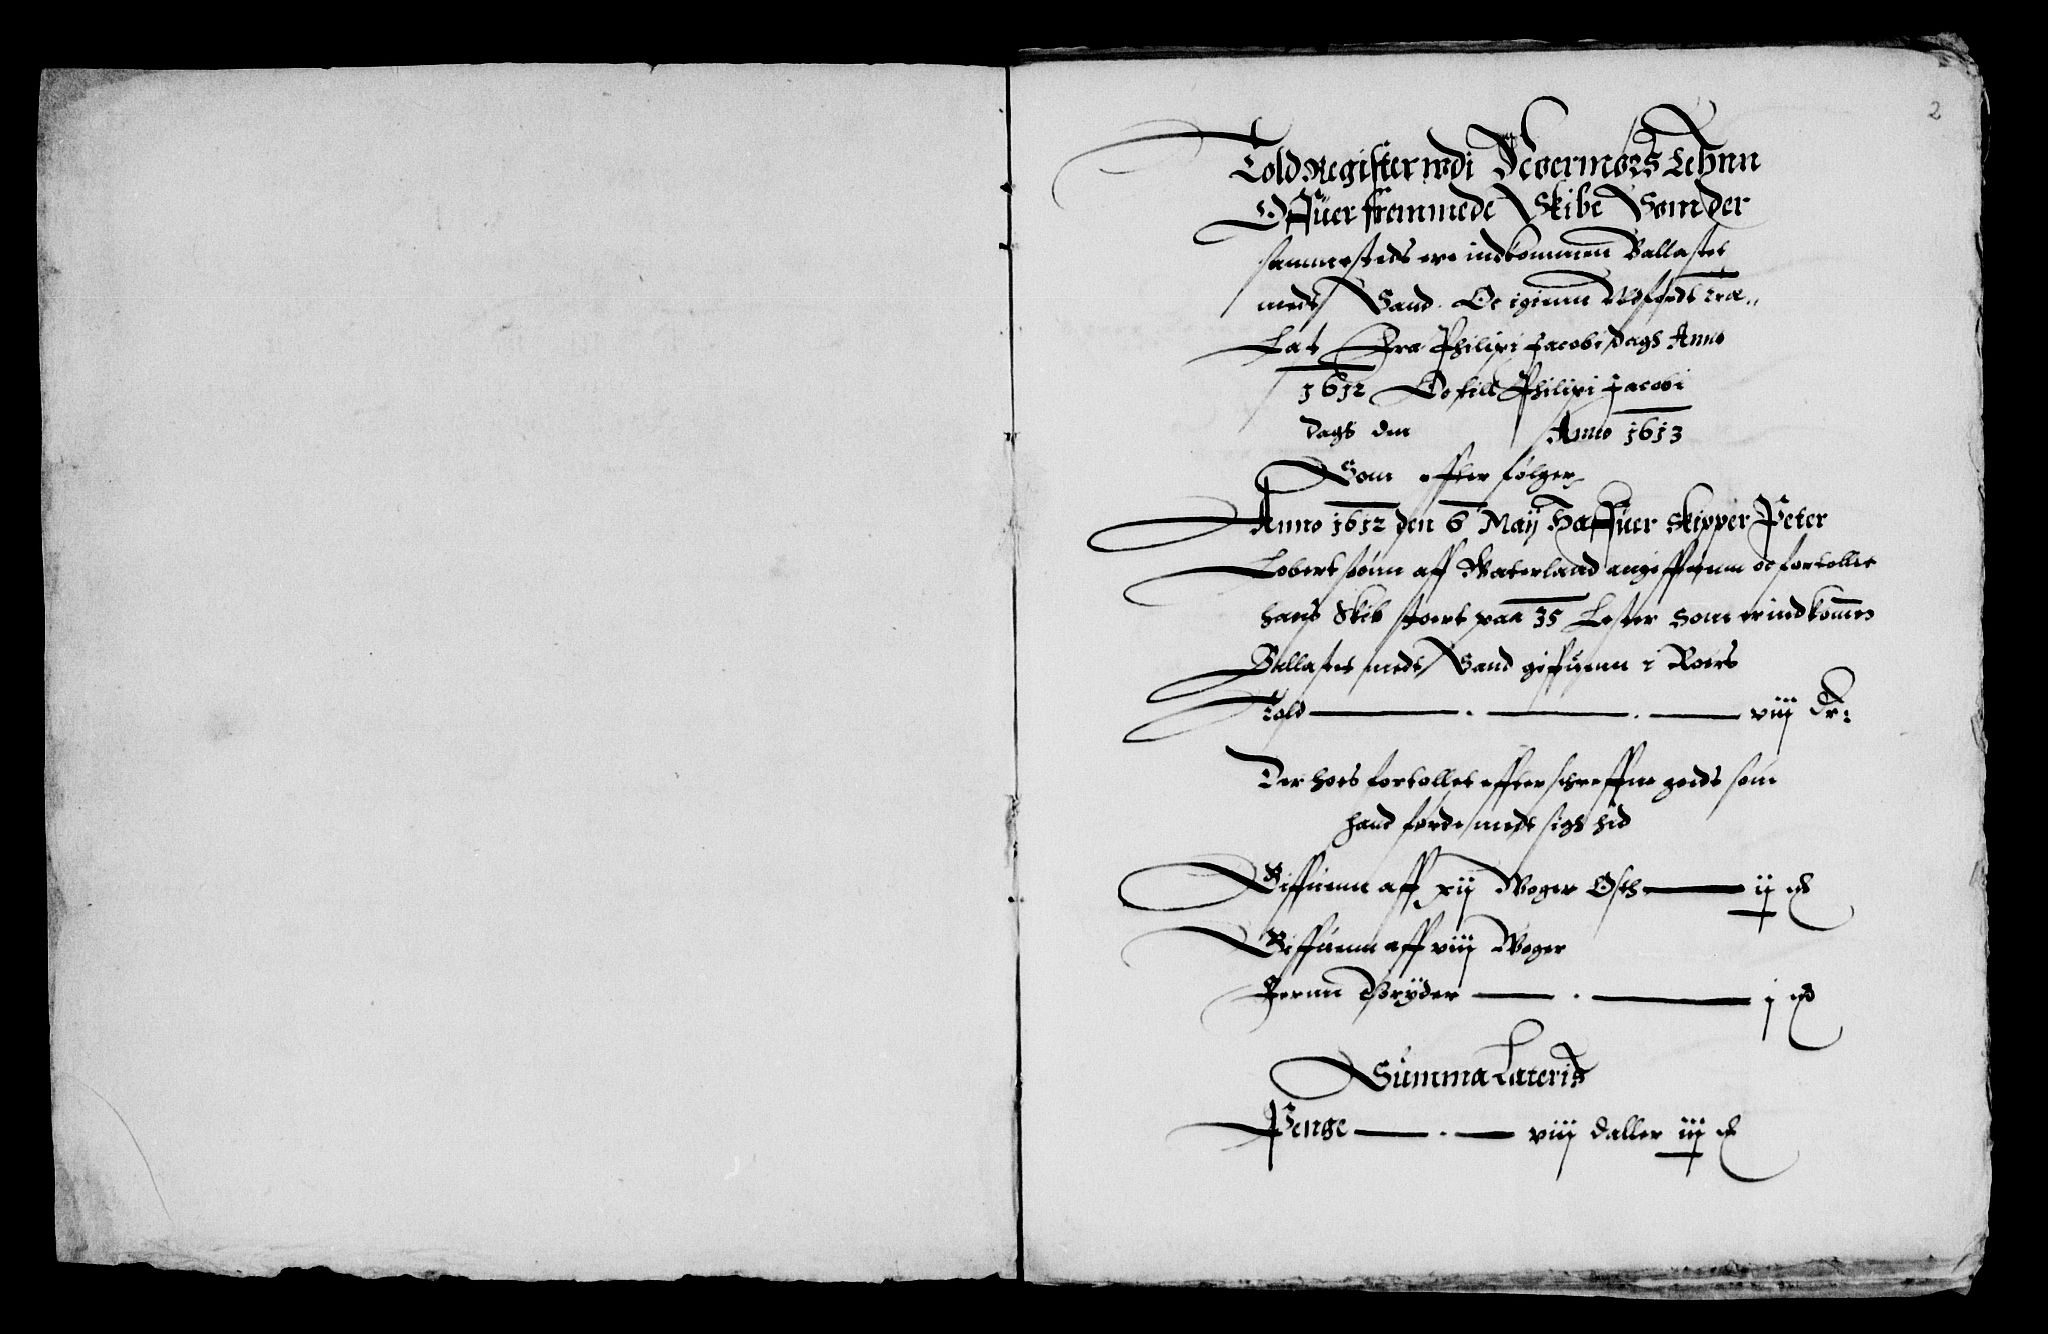 2
Told Register wdi Vegermørs Lehnn
Offuer fremmede Skibe Som der
sammesteds ere indkommen Ballastet
meds Sand. Oc igienn Udførdt træ„
Last Fra Philipi Jacobi dags Anno
1612 Oc till Philipi Jacobi
dags den Anno 1613
Som effter følger
Anno 1612 den 6 Maij Haffuer Skipper Peter
Lobertsøenn aff Waterland angiffuenn oc fortollet
hans Skib stoert paa 35 Lester som er indkommen
Ballastet meds Sand giffuenn i Roers
Told ——— . ——— . —— viij Dr:
Der hoes fortollet effterschreffne goeds som
hand førde meds sigh hid
Giffuenn aff xij Woger Osth ——— ij
Giffuenn aff viij Woger
Jernn Gryder —— . ——— j
Summa Lateris
Penge —— . —— viij daller iij